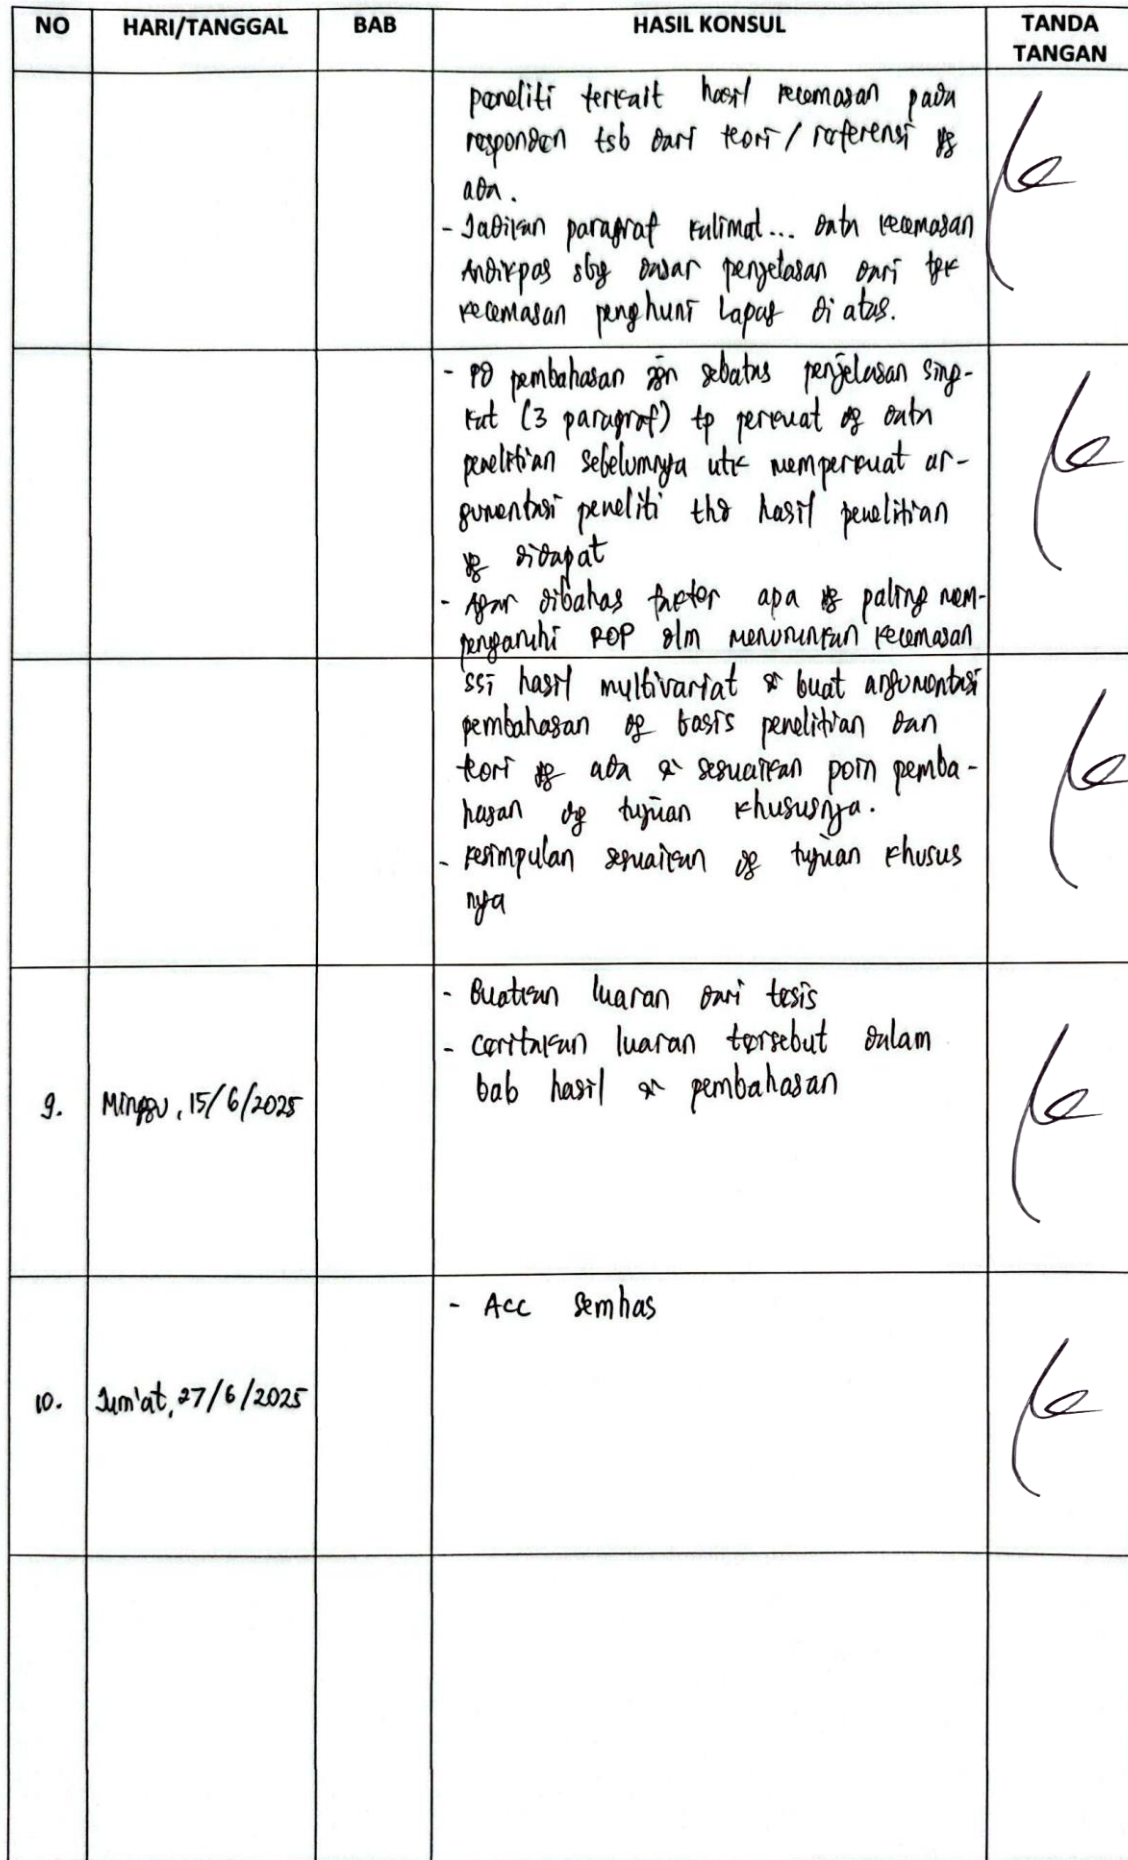 NO HARI/TANGGAL BAB HASIL KONSUL TANDA TANGAN
peneliti terkait hasil kecemasan pada
responden tsb dari teori / referensi yg
ada.
- Jadikan paragraf kalimat... data kecemasan
Andikpas sbg dasar penjelasan dari tgk
kecemasan penghuni Lapas di atas.
- Pd pembahasan jgn sebatas penjelasan sing-
kat (3 paragraf) tp perkuat dg data
penelitian sebelumnya utk memperkuat ar-
gumentasi peneliti thd hasil penelitian
yg didapat
- Agar dibahas faktor apa yg paling mem-
pengaruhi ROP dlm menurunkan kecemasan
ssi hasil multivariat & buat argumentasi
pembahasan dg basis penelitian dan
teori yg ada & sesuaikan poin pemba-
hasan dg tujuan khususnya.
- Kesimpulan sesuaikan dg tujuan khusus
nya
9. Minggu, 15/6/2025
- Buatkan luaran dari tesis
- ceritakan luaran tersebut dalam
bab hasil & pembahasan
10. Jum'at, 27/6/2025
- Acc semhas